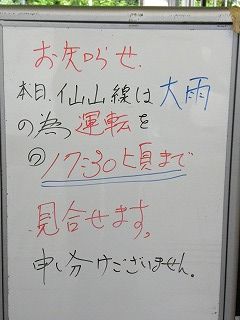 お知らせ.
本日.仙山線は大雨
の為運転を
17:30頃まで
見合せます。
申し分けございません。